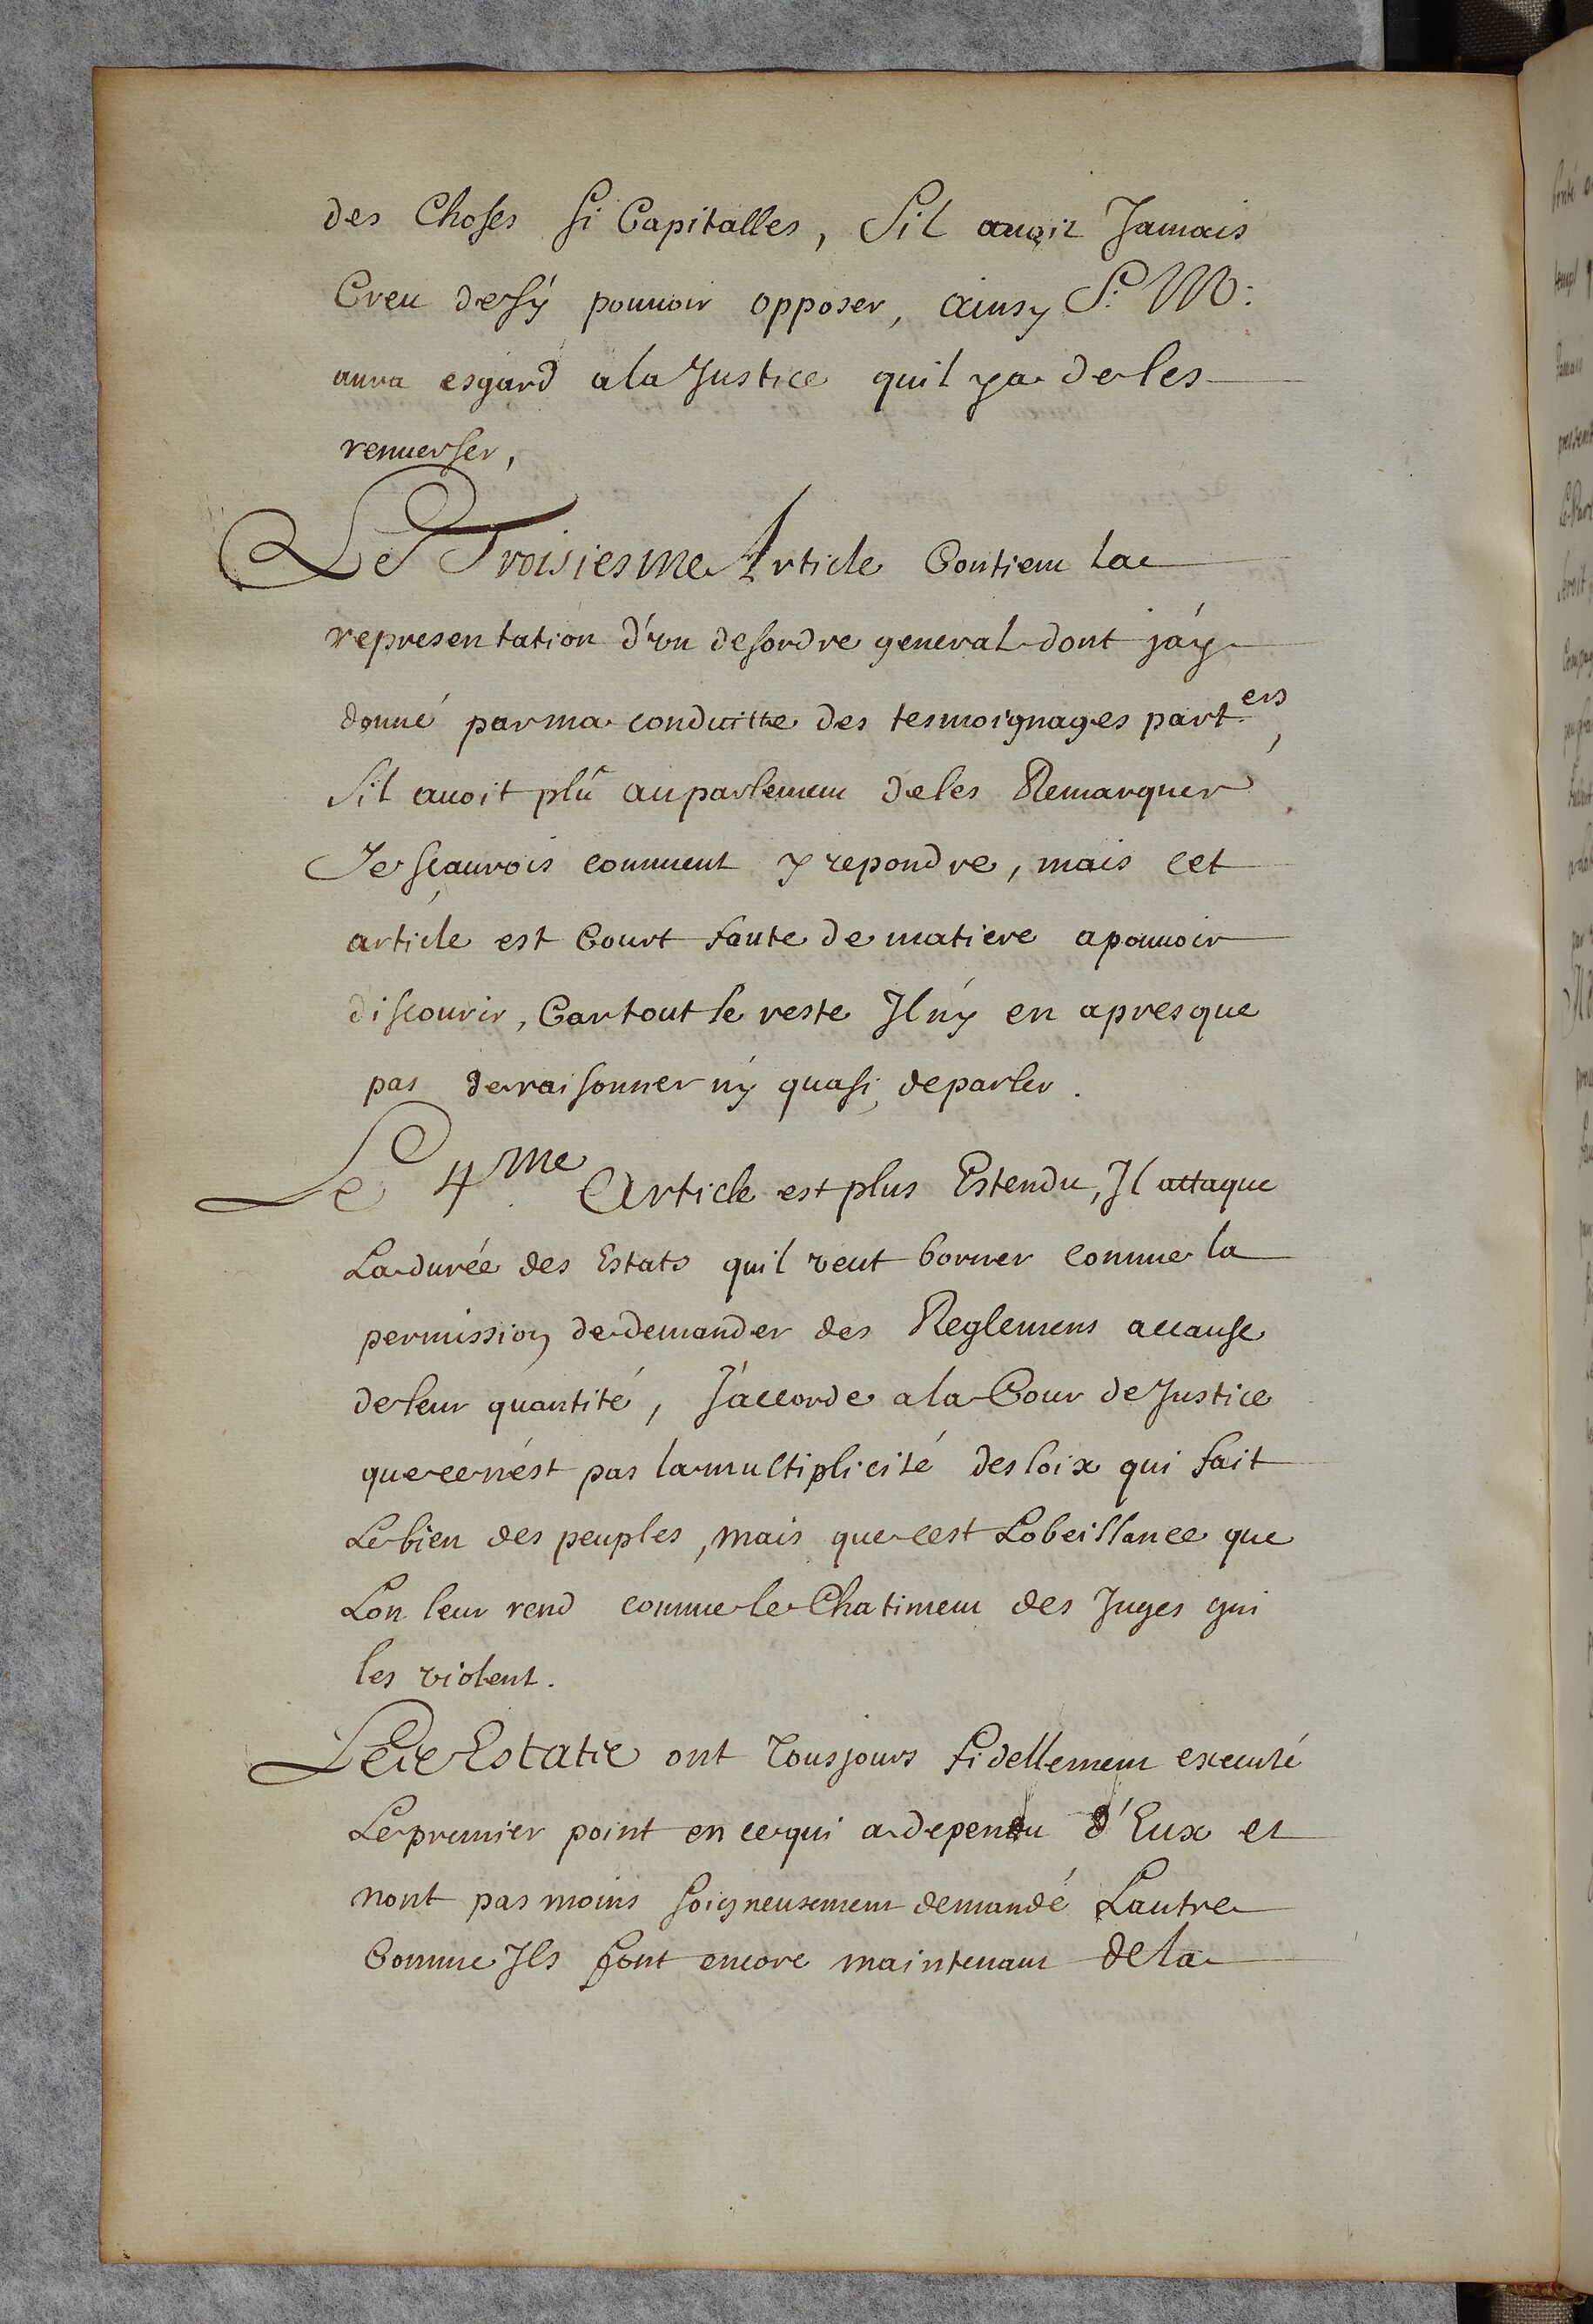 des Choses si Capitalles, sil auoit Jamais
Creu desÿ pouuoir opposer, ainsy S. M:
aura esgard ala Justice quil ya de les
renuerser,
Le Troisiesme Article Contient la
representation d'vn desordre general dont j'ay
donné par ma conduitte des tesmoignages part.ers,
sil auoit plû au parlement de les Remarquer
Je sçaurois comment y repondre, mais cet
article est Court faute de matiere a pouuoir
discourir, Car tout le reste Il n'y en a presque
pas de raisonner n'y quasi de parler.
Le 4.me Article est plus Estendu, Il attaque
La durée des Estats quil veut borner comme la
permission de demander des Reglemens accause
de leur quantité, J'accorde a la Cour de Justice
que ce n'est pas la multiplicité des loix qui fait
Le bien des peuples, mais que cest Lobeissance que
Lon leur rend comme le Chatiment des Juges qui
les violent.
Les Estats ont Tousjours fidellement executé
Le premier point en ce qui a dependu d'Eux et
nont pas moins soigneusement demandé Lautre
Comme Ils font encore maintenant de la